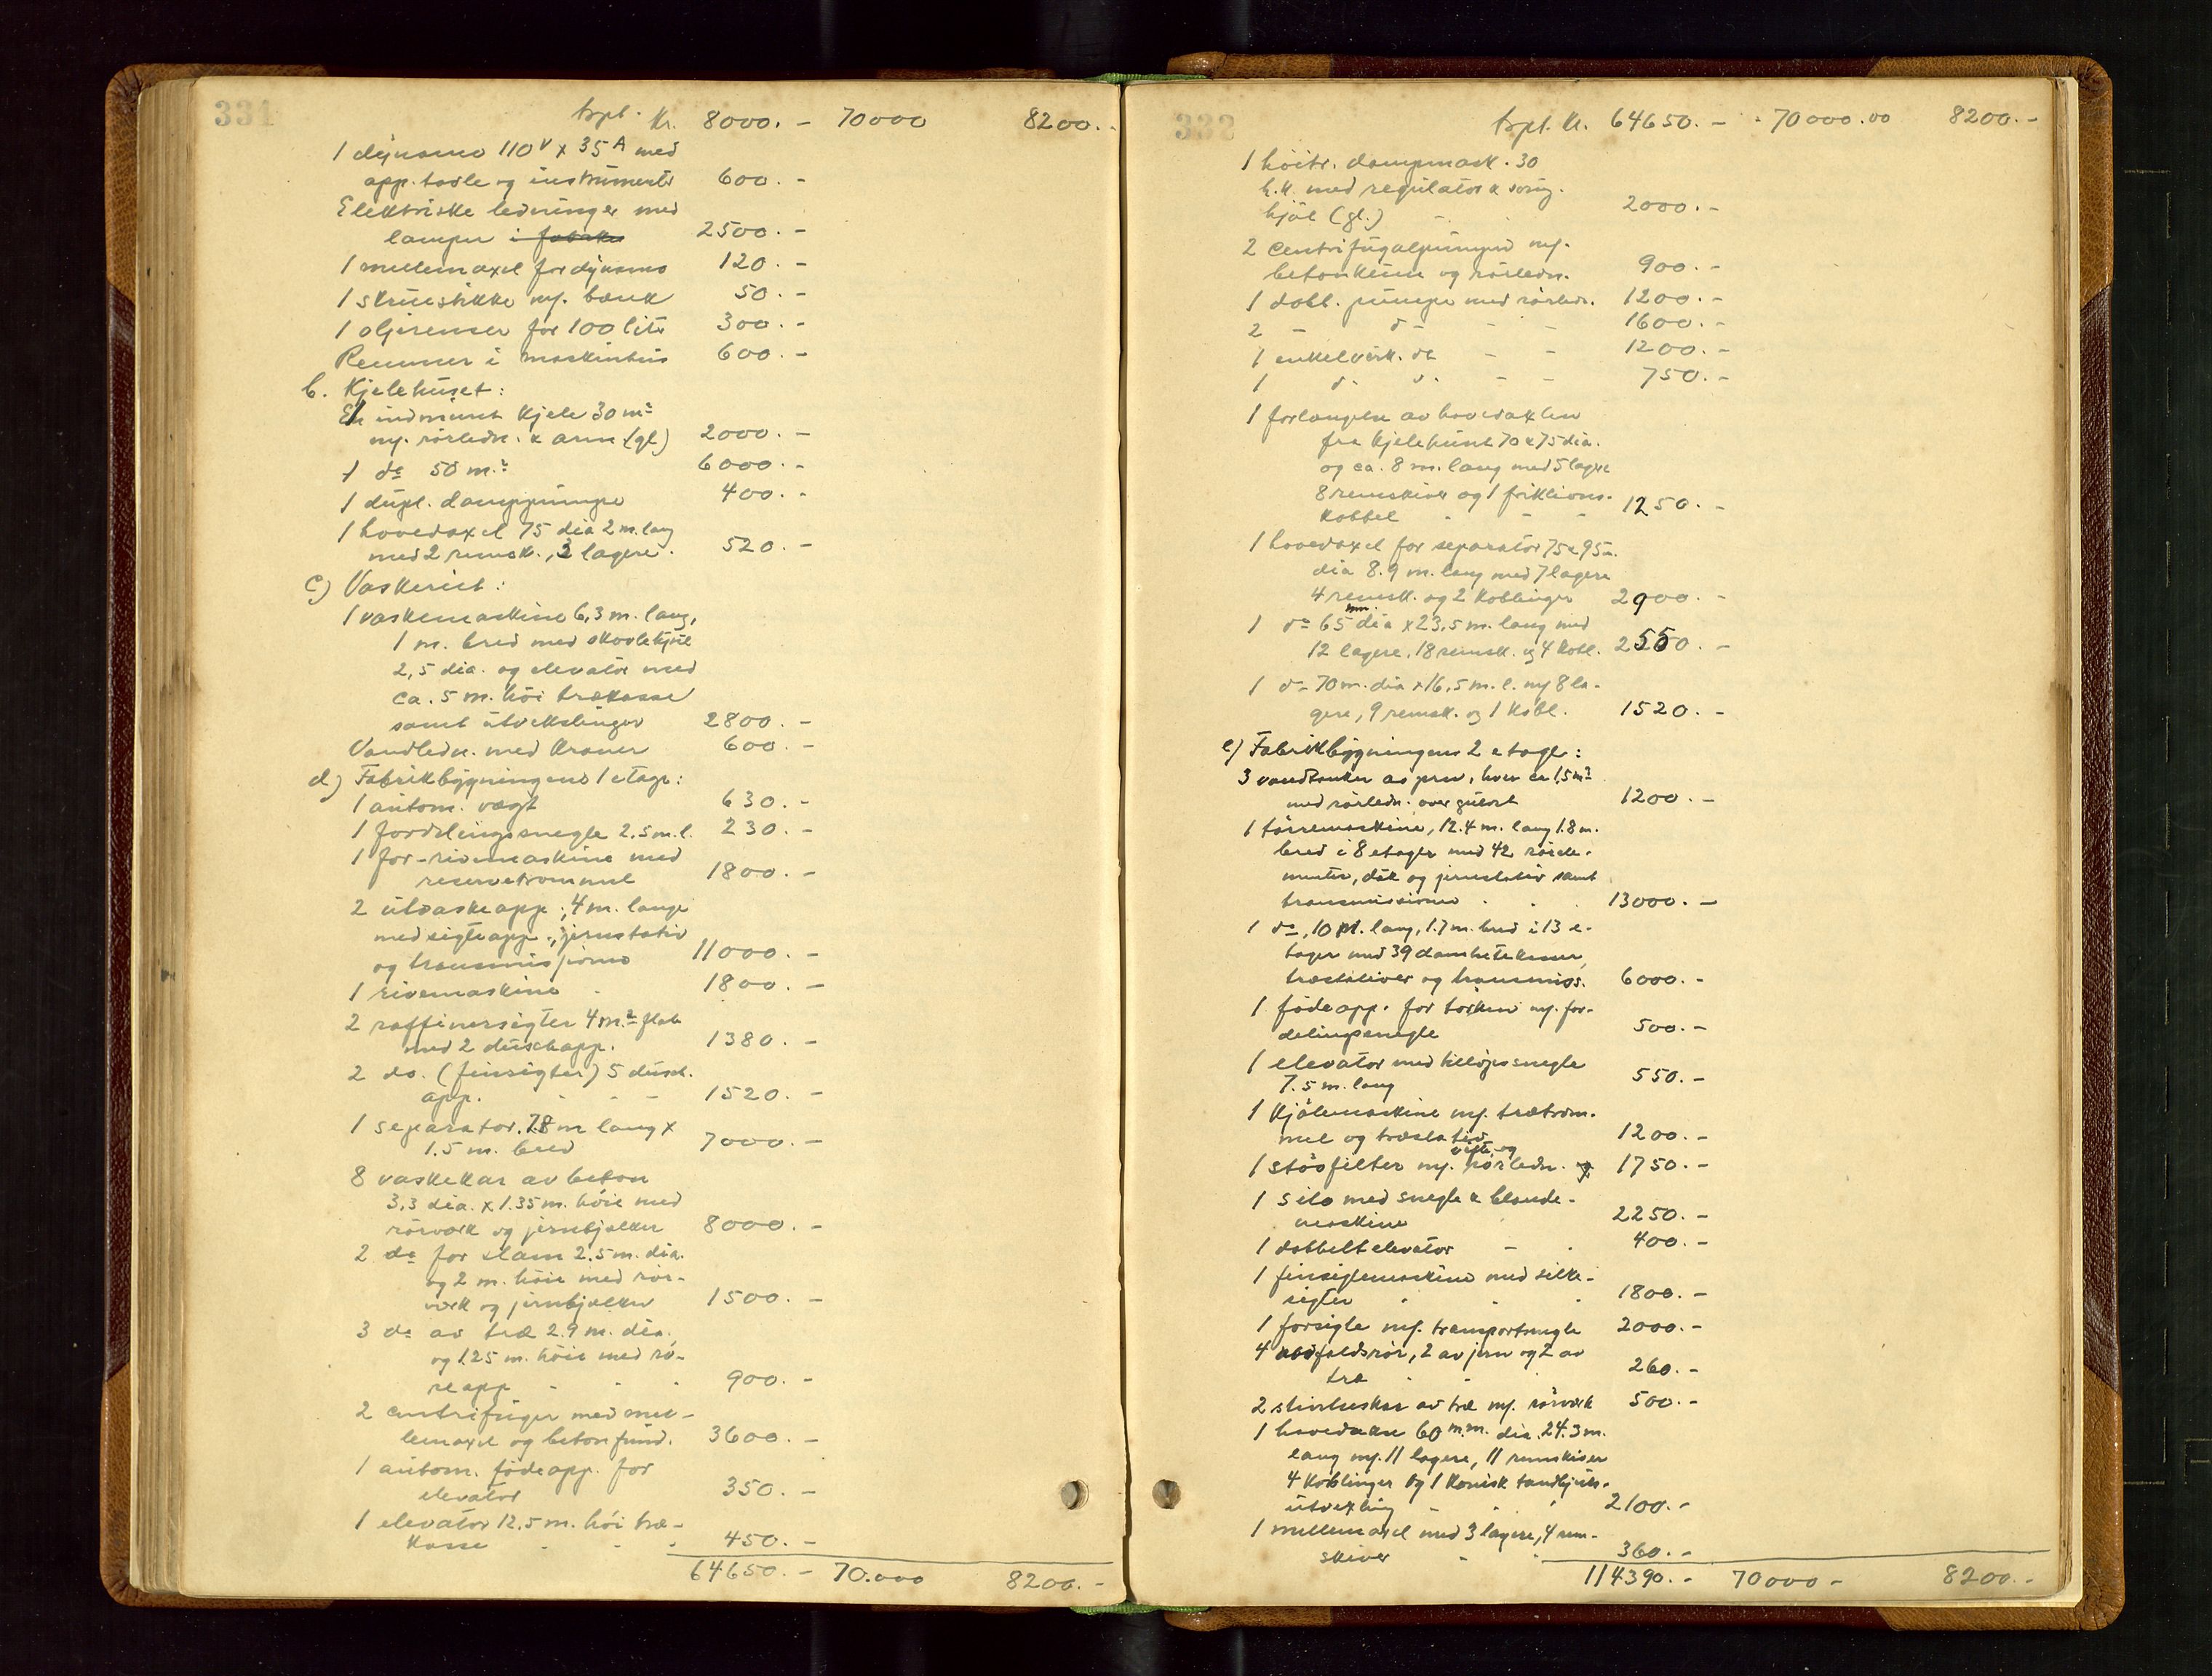 331
trpt. Kr. 8000.- 70000 8200.-
1 dynamo 110V x 35A med
app. tavle og instrumenter 600.-
Elektriske ledninger med
lamper i fabrikk 2500.-
1 mellemaxel for dynamo 120.-
1 skruestikke m/. bænk 50.-
1 oljerenser for 100 liter 300.-
Remmer i maskinhus 600.-
b. Kjelehuset:
1 indmuret kjele 30 m²
m/. rörledn. & arm. (gl) 2000.-
1 do 50 m.² 6000.-
1 dupl. damppumpe 400.-
1 hovedaxel 75 dia 2 m. lang
med 2 remsk., 3 lagere. 520.-
c) Vaskeriet:
1 vaskemaskine 6,3 m. lang,
1 m. bred med skovlehjul
2,5 dia. og elevator med
ca. 5 m. höi trækasse
samt utvekslinger 2800.-
Vandledn. med kraner 600.-
d) Fabrikbygningens 1 etage:
1 autom. vægt 630.-
1 fordelingssnegle 2.5 m. l. 230.-
1 for-rivemaskine med
reservetrommel 1800.-
2 utvaskeapp., 4 m. lange
med sigteapp., jernstativ
og transmisjoner 11000.-
1 rivemaskine 1800.-
2 raffinersigter 4 m.² flate
med 2 duschapp. 1380.-
2 do. (finsigter) 5 dusch.
app. - - - 1520.-
1 separator. 7.8 m lang x
1.5 m. bred 7000.-
8 vaskekar av beton
3,3 dia. x 1.35 m. höie med
rörværk og jernbjelker 8000.-
2 do for slam 2.5 m. dia.
og 2 m. höie med rör-
værk og jernbjelker 1500.-
3 do av træ 2.9 m. dia.
og 1.25 m. höie med rö-
reapp - - - 900.-
2 centrifuger med mel-
lemaxel og betonfund. 3600.-
1 autom. födeapp. for
elevator 350.-
1 elevator 12,5 m. höi træ-
kasse - - - 450.-
64650.- 70.000 8200.-
332
trpt. Kr. 64650.- 70000.00 8200.-
1 höitr. dampmask. 30
h.k. med regulator & sving-
hjul (gl.) 2000.-
2 Centrifugalpumper m/.
betonkum og rörledn. 900.-
1 dobl. pumpe med rörledn. 1200.-
2 - do - - 1600.-
1 enkeltvirk. do - - 1200.-
1 do do - - 750.-
1 forlængelse av hovedaxlen
fra kjelehuset 70 & 75 dia.
og ca. 8 m. lang med 5 lagere
8 remskiver og 1 friktions-
kobbel - - - 1250.-
1 hovedaxel for separator 75 & 95
dia 8.9 m. lang med 7 lagere
4 remsk. og 2 koblinger 2900.-
1 do 65 mm. dia x 23,5 m. lang med
12 lagere, 18 remsk. og 4 kobl. 2550.-
1 do 70 m. dia x 16,5 m. l. m/ 8 la-
gere, 9 remsk. og 1 kobl. 1520.-
e) Fabrikbygningens 2 etage:
3 vandtanker av jern, hver ca 1,5 m³
med rörledn. over gulvet 1200.-
1 törremaskine, 12.4 m. lang 1.8 m.
bred i 8 etager med 42 rörele-
menter, duk og jernstativ samt
transmissioner 13000.-
1 do, 10 m. lang, 1.7 m. bred i 13 e-
tager med 39
træstativer og transmiss. 6000.-
1 födeapp. for törken m/. for-
delingssnegle 500.-
1 elevator med tillöpssnegle
7.5 m. lang 550.-
1 kjölemaskine m/. trætrom-
mel og træstativ 1200.-
1 stövfilter m/. vifte og rörledn. 1750.-
1 silo med snegle & blande-
maskine 2250.-
1 dobbeltelevator - - 400.-
1 finsigtemaskine med silke-
sigter - - - 1800.-
1 forsigte m/. transportsnegle 2000.-
4 avfaldsrör, 2 av jern og 2 av
træ - - 260.-
2 av træ m/. rörverk 500.-
1 hovedaksel 60 m.m. dia. 24.3 m.
lang m/. 11 lagere, 11 remskiver
4 koblinger og 1 konisk tandhjuls-
utvexling - - 2100.-
1 mellemaxel med 3 lagere, 4 rem-
skiver - - 360.-
114390.- 70000- 8200.-